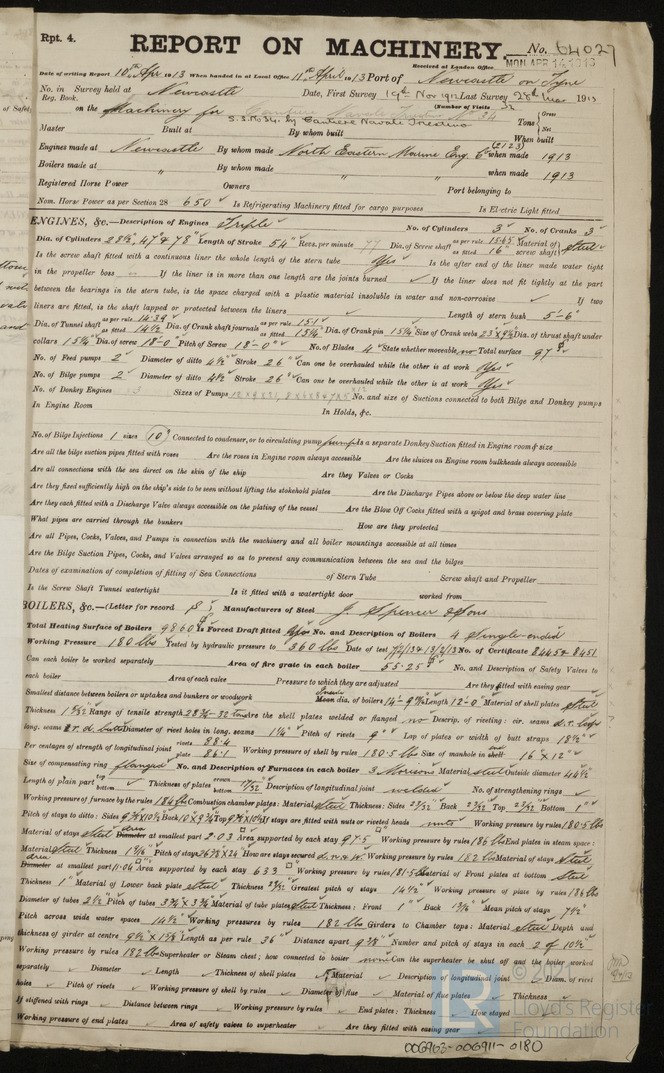 Rpt. 4.
REPORT ON MACHINERY.
No. 64027
Received at London Office MON. APR 14 1913
Date of writing Report 10th Apr. 1913 When handed in at Local Office 11th April 1913 Port of Newcastle on Tyne
No. in Survey held at Newcastle Date, First Survey 19th Nov 1912 Last Survey 28th Mar 1913
Reg. Book. (Number of Visits 32
on the Machinery for Cantiere Navale Triestino No 34
S.S. No 34. by Cantiere Navale Triestino Tons Gross Net
Master Built at By whom built When built
Engines made at Newcastle By whom made North Eastern Marine Eng. Co (2123) when made 1913
Boilers made at " By whom made " " when made 1913
Registered Horse Power Owners Port belonging to
Nom. Horse Power as per Section 28 650 Is Refrigerating Machinery fitted for cargo purposes Is Electric Light fitted
ENGINES, &c.—Description of Engines Triple No. of Cylinders 3 No. of Cranks 3
Dia. of Cylinders 28½", 47" & 78" Length of Stroke 54" Revs. per minute 77 Dia. of Screw shaft as per rule 15.65 as fitted 16" Material of screw shaft steel
Is the screw shaft fitted with a continuous liner the whole length of the stern tube Yes Is the after end of the liner made water tight
in the propeller boss If the liner is in more than one length are the joints burned If the liner does not fit tightly at the part
between the bearings in the stern tube, is the space charged with a plastic material insoluble in water and non-corrosive If two
liners are fitted, is the shaft lapped or protected between the liners Length of stern bush 5'-6"
Dia. of Tunnel shaft as per rule 14.39 as fitted 14½ Dia. of Crank shaft journals as per rule 15.1 as fitted 15¼ Dia. of Crank pin 15¼ Size of Crank webs 23 x 9¼ Dia. of thrust shaft under
collars 15¼ Dia. of screw 18'-0" Pitch of Screw 18'-0" No. of Blades 4 State whether moveable no Total surface 97
No. of Feed pumps 2 Diameter of ditto 4½ Stroke 26" Can one be overhauled while the other is at work Yes
No. of Bilge pumps 2 Diameter of ditto 4½ Stroke 26" Can one be overhauled while the other is at work Yes
No. of Donkey Engines 3 Sizes of Pumps No. and size of Suctions connected to both Bilge and Donkey pumps
In Engine Room In Holds, &c.
No. of Bilge Injections 1 sizes 10" Connected to condenser, or to circulating pump pump Is a separate Donkey Suction fitted in Engine room & size
Are all the bilge suction pipes fitted with roses Are the roses in Engine room always accessible Are the sluices on Engine room bulkheads always accessible
Are all connections with the sea direct on the skin of the ship Are they Valves or Cocks
Are they fixed sufficiently high on the ship's side to be seen without lifting the stokehold plates Are the Discharge Pipes above or below the deep water line
Are they each fitted with a Discharge Valve always accessible on the plating of the vessel Are the Blow Off Cocks fitted with a spigot and brass covering plate
What pipes are carried through the bunkers How are they protected
Are all Pipes, Cocks, Valves, and Pumps in connection with the machinery and all boiler mountings accessible at all times
Are the Bilge Suction Pipes, Cocks, and Valves arranged so as to prevent any communication between the sea and the bilges
Dates of examination of completion of fitting of Sea Connections of Stern Tube Screw shaft and Propeller
Is the Screw Shaft Tunnel watertight Is it fitted with a watertight door worked from
BOILERS, &c.—(Letter for record S) Manufacturers of Steel J. Spencer & Sons
Total Heating Surface of Boilers 9860 Is Forced Draft fitted Yes No. and Description of Boilers 4 Single-ended
Working Pressure 180 lbs Tested by hydraulic pressure to 360 lbs Date of test 7/2/13 & 13/2/13 No. of Certificate 8445 & 8451
Can each boiler be worked separately Area of fire grate in each boiler 55.25 No. and Description of Safety Valves to
each boiler Area of each valve Pressure to which they are adjusted Are they fitted with easing gear
Smallest distance between boilers or uptakes and bunkers or woodwork Mean dia. of boilers Length 12'-0" Material of shell plates steel
Thickness Range of tensile strength 28¾-32 tons Are the shell plates welded or flanged no Descrip. of riveting: cir. seams d.r. laps
long. seams Diameter of rivet holes in long. seams 1¼" Pitch of rivets 9" Lap of plates or width of butt straps 18½"
Per centages of strength of longitudinal joint rivets 88.4 plate 86.1 Working pressure of shell by rules 180.5 lbs Size of manhole in shell 16" x 12"
Size of compensating ring flanged No. and Description of Furnaces in each boiler 3 Morisons Material steel Outside diameter 44½"
Length of plain part top bottom Thickness of plates crown bottom 17/32 Description of longitudinal joint welded No. of strengthening rings
Working pressure of furnace by the rules 184 lbs Combustion chamber plates: Material steel Thickness: Sides 23/32 Back 23/32 Top 23/32 Bottom 1"
Pitch of stays to ditto: Sides Back Top If stays are fitted with nuts or riveted heads nuts Working pressure by rules 180.5 lbs
Material of stays steel area Diameter at smallest part 2.03 Area supported by each stay 97.5 Working pressure by rules 186 lbs End plates in steam space:
Material steel Thickness 1 3/16 Pitch of stays How are stays secured Working pressure by rules 182 lbs Material of stays steel
area Diameter at smallest part Area supported by each stay 633 Working pressure by rules 181.5 lbs Material of Front plates at bottom steel
Thickness 1" Material of Lower back plate steel Thickness 27/32 Greatest pitch of stays 14½" Working pressure of plate by rules 186 lbs
Diameter of tubes 2½ Pitch of tubes 3¾ x 3¾ Material of tube plates steel Thickness: Front 1" Back 13/16 Mean pitch of stays 7½
Pitch across wide water spaces 14½" Working pressures by rules 182 lbs Girders to Chamber tops: Material steel Depth and
thickness of girder at centre Length as per rule 36" Distance apart 9⅜" Number and pitch of stays in each 2 of 10½"
Working pressure by rules 182 lbs Superheater or Steam chest; how connected to boiler none Can the superheater be shut off and the boiler worked
separately Diameter Length Thickness of shell plates Material Description of longitudinal joint Diam. of rivet
holes Pitch of rivets Working pressure of shell by rules Diameter of flue Material of flue plates Thickness
If stiffened with rings Distance between rings Working pressure by rules End plates: Thickness How stayed
Working pressure of end plates Area of safety valves to superheater Are they fitted with easing gear
© 2021
Lloyd's Register
Foundation
006963-006911-0180